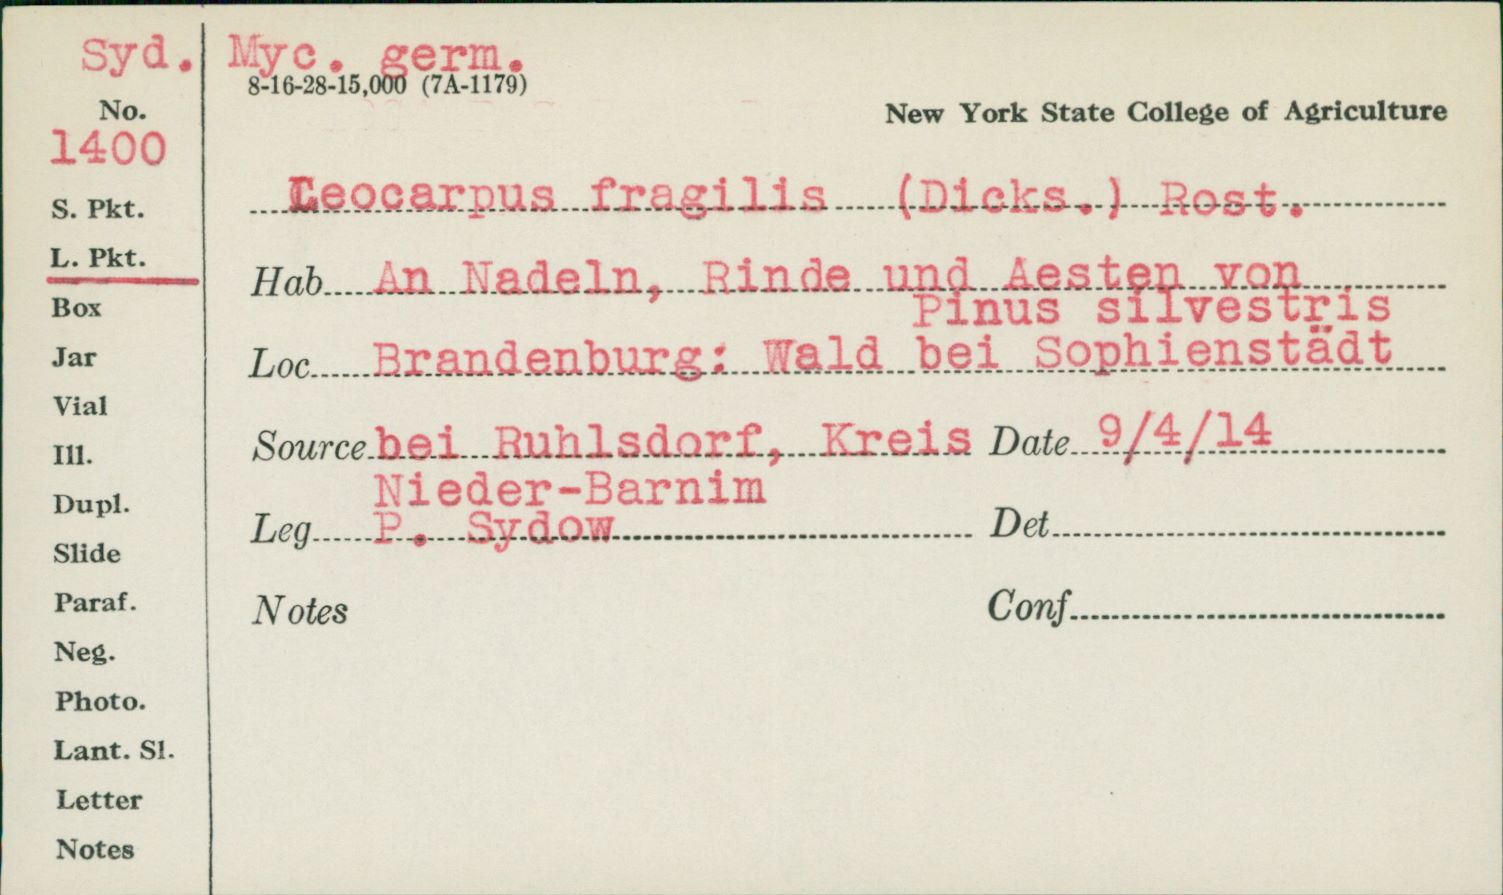 Syd. Myc. germ.
8-16-28-15,000 (7A-1179)
New York State College of Agriculture
No.
1400
S. Pkt.
L. Pkt.
Box
Jar
Vial
Ill.
Dupl.
Slide
Paraf.
Neg.
Photo.
Lant. Sl.
Letter
Notes
Leocarpus fragilis (Dicks.) Rost.
Hab. An Nadeln, Rinde und Aesten von
Pinus silvestris
Loc. Brandenburg: Wald bei Sophienstädt
Source bei Ruhlsdorf, Kreis Date 9/4/14
Nieder-Barnim
Leg. P. Sydow Det.
Notes Conf.